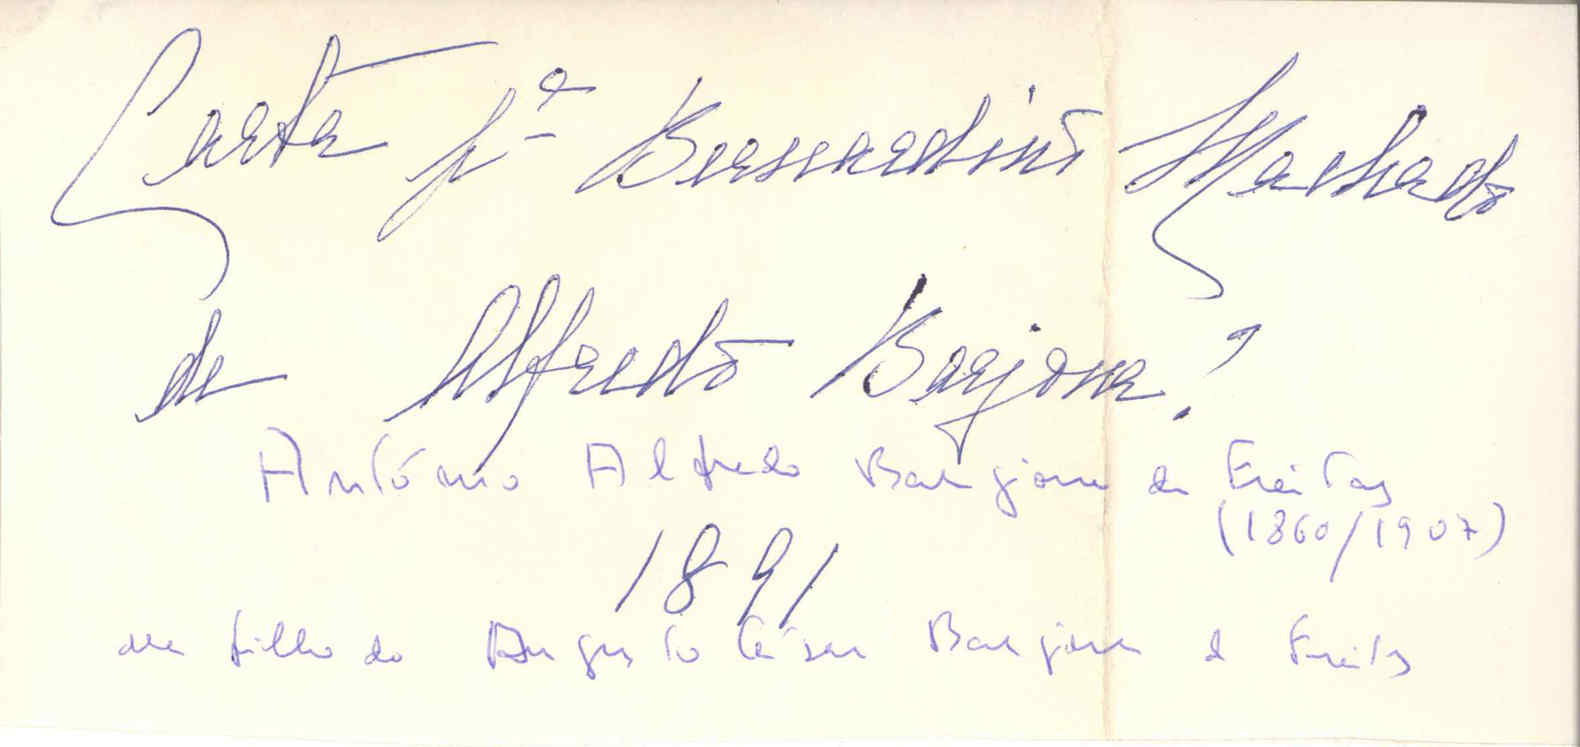 Carta pª Bernardino Machado
de Alfredo Barjona?
António Alfredo Barjona de Freitas
(1860/1907)
1891
era filho do Augusto César Barjona d Freitas